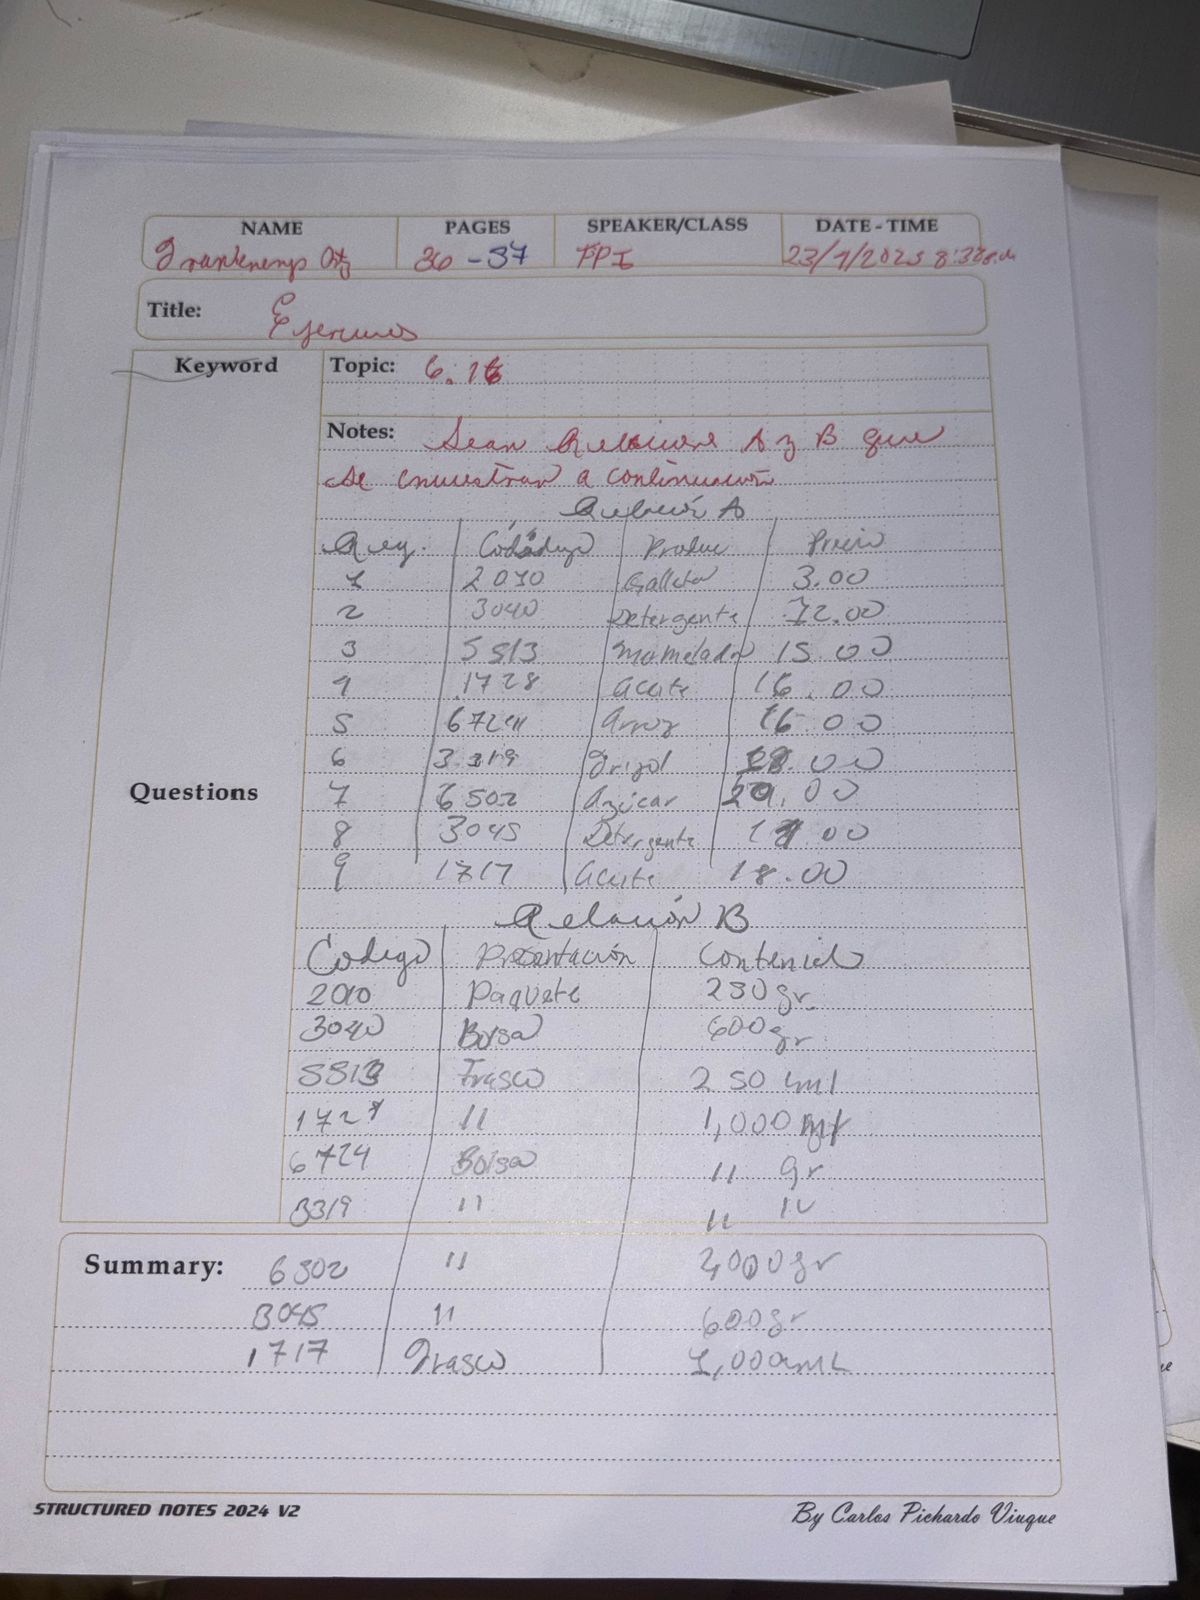 NAME PAGES SPEAKER/CLASS DATE - TIME
36 - 37 FPI 23/1/2025 8:33
Title:
Ejercicios
Keyword Topic: 6.16
Notes: Sean Relaciones A y B que
se encuestran a continuación
Relación A
Reg. Código Produc Precio
1 2010 Galleta 3.00
2 3040 Detergente 12.00
3 5513 Mamelada 15.00
4 1728 aceite 16.00
5 6724 Arroz 16.00
6 3319 Frijol 18.00
Questions
7 6502 Azúcar 20.00
8 3045 Detergente 17.00
9 1717 aceite 18.00
Relación B
Codigo Presentación Contenid
2010 Paquete 250 gr.
3040 Bolsa 600 gr
5513 Frasco 250 ml
172 " 1,000 ml
6724 Bolsa " gr
3319 " " "
Summary: 6502 " 2,000 gr
3045 " 600 gr
1717 Frasco 1,000 mL
STRUCTURED NOTES 2024 V2 By Carlos Pichardo Viuque